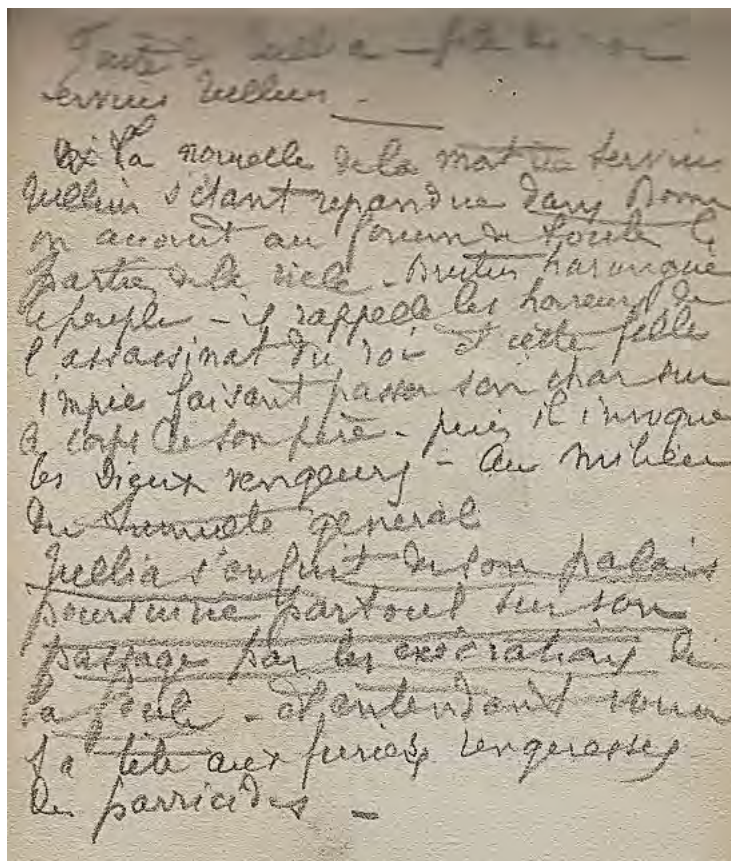 Fuite de Tullia – fille du roi
servius Tullius –
La nouvelle de la mort de Servius
Tullius s'étant repandue dans Rome
on accourt au forum de toute les
parties de la ville – Brutus harangue
le peuple – il rappelle les horreurs de
l'assassinat du roi et cette fille
impie faisant passer son char sur
le corps de son père – puis il invoque
les Dieux vengeurs – Au milieu
du tumulte général
Tullia s'enfuit de son palais
poursuivie partout sur son
passage par les exécrations de
la foule – et entendant vouer
sa tête aux furies vengeresses
des parricides –